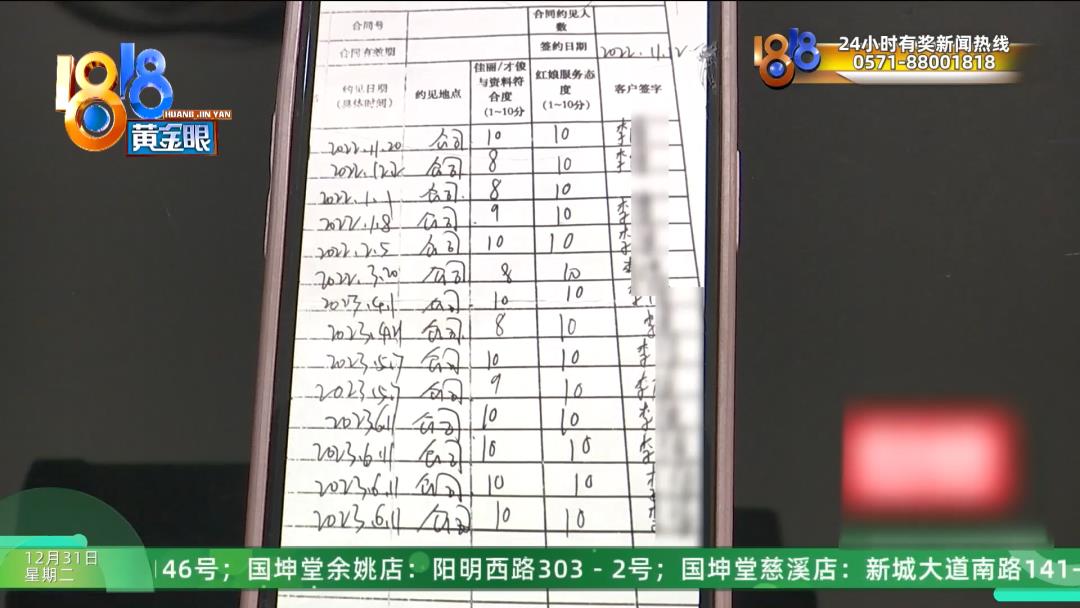 合同号
合同约见人数
合同有效期
签约日期
2022.11.12
约见日期（具体时间）
约见地点
佳丽/才俊与资料符合度（1~10分）
红娘服务态度（1~10分）
客户签字
2022.11.20 公司 10 10 李
公司 8 10 李
2022.1.1 公司 8 10
2022.1.8 公司 9 10 李
2022.2.5 公司 10 10 李
2022.3.20 公司 8 10 李
2023.4.1 公司 10 10 李
公司 8 10 李
2023.5.7 公司 10 10 李
2023.5.7 公司 9 10 李
2023.6.11 公司 10 10 李
2023.6.11 公司 10 10 李
2023.6.11 公司 10 10 李
2023.6.11 公司 10 10 李
1818
HUANG JIN YAN
黄金眼
1818
24小时有奖新闻热线
0571-88001818
12月31日
星期二
146号；国坤堂余姚店：阳明西路303－2号；国坤堂慈溪店：新城大道南路141-